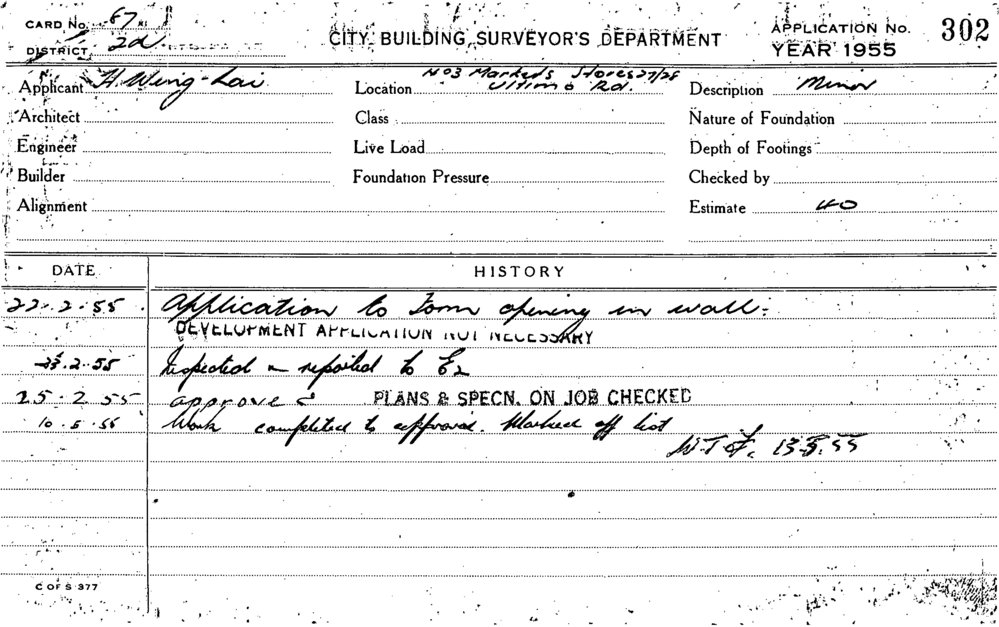 CARD No. 87
DISTRICT 2d
CITY BUILDING SURVEYOR'S DEPARTMENT
APPLICATION No. 302
YEAR 1955
Applicant H Wing-Lai
Location No3 Markets Stores 27/28
Ultimo Rd.
Description Minor
Architect
Class
Nature of Foundation
Engineer
Live Load
Depth of Footings
Builder
Foundation Pressure
Checked by
Alignment
Estimate 40
DATE
HISTORY
22.2.55 Application to form opening in wall.
DEVELOPMENT APPLICATION NOT NECESSARY
.2.55 Inspected & reported to
25.2.55 approved PLANS & SPECN. ON JOB CHECKED
10.5.55 Work completed to approval. Marked off list
13.5.55
C OF S 377